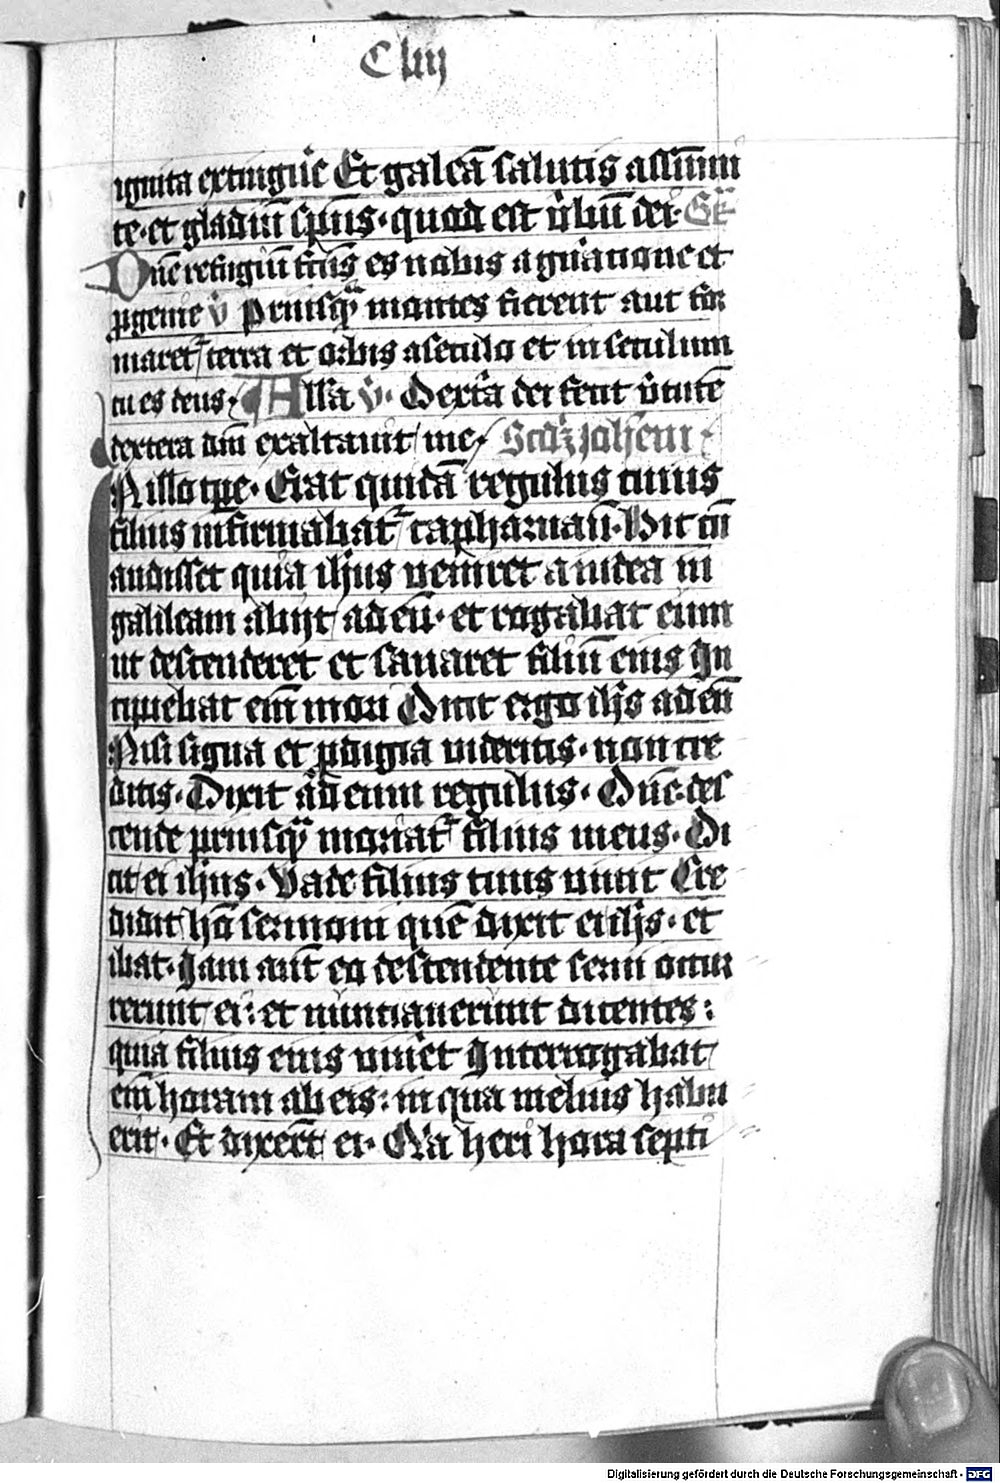 Cliij
ignita extingu̅e Et galeā salutis assūmi
te · et gladiū sp̄us · quod est v̄bū dei · Gr̄
Dn̄e refugiū fc̄us es nobis a gn̄atione et
ꝓgenie v̄ Priusq̄ montes fierent aut for
maret᷑ terra et orbis a seculo et in seculum
tu es deus · Alla v̄ · Dext̄a dei fecit v̄tutē
dextera dn̄i exaltauit me
In illo tp̄e · Erat quidā regulus cuius
filius infirmabat᷑ capharnaū · Hic cū
audisset quia ih̄us veniret a iudea in
galileam abijt ad eū · et rogabat eum
ut descenderet et sanaret filiū eius In
cipiebat em̄ mori Dixit ergo ih̄s ad eū
Nisi signa et ꝓdigia videritis · non cre
ditis · Dixit ad eum regulus · Dn̄e · des
cende priusq̄ moriat᷑ filius meus · Di
cit ei ih̄us · Vade filius tuus uiuit Cre
didit hō sermoni quē dixit ei ih̄s · et
ibat · Iam aut̄ eo descendente serui occur
rerunt ei : et nūntiauerunt dicentes :
quia filius eius viuēt Interrogabat
em̄ horam ab eis : in qua melius habu
erit · Et dixer̄t ei · Q̄ia heri hora septi
Digitalisierung gefördert durch die Deutsche Forschungsgemeinschaft - DFG